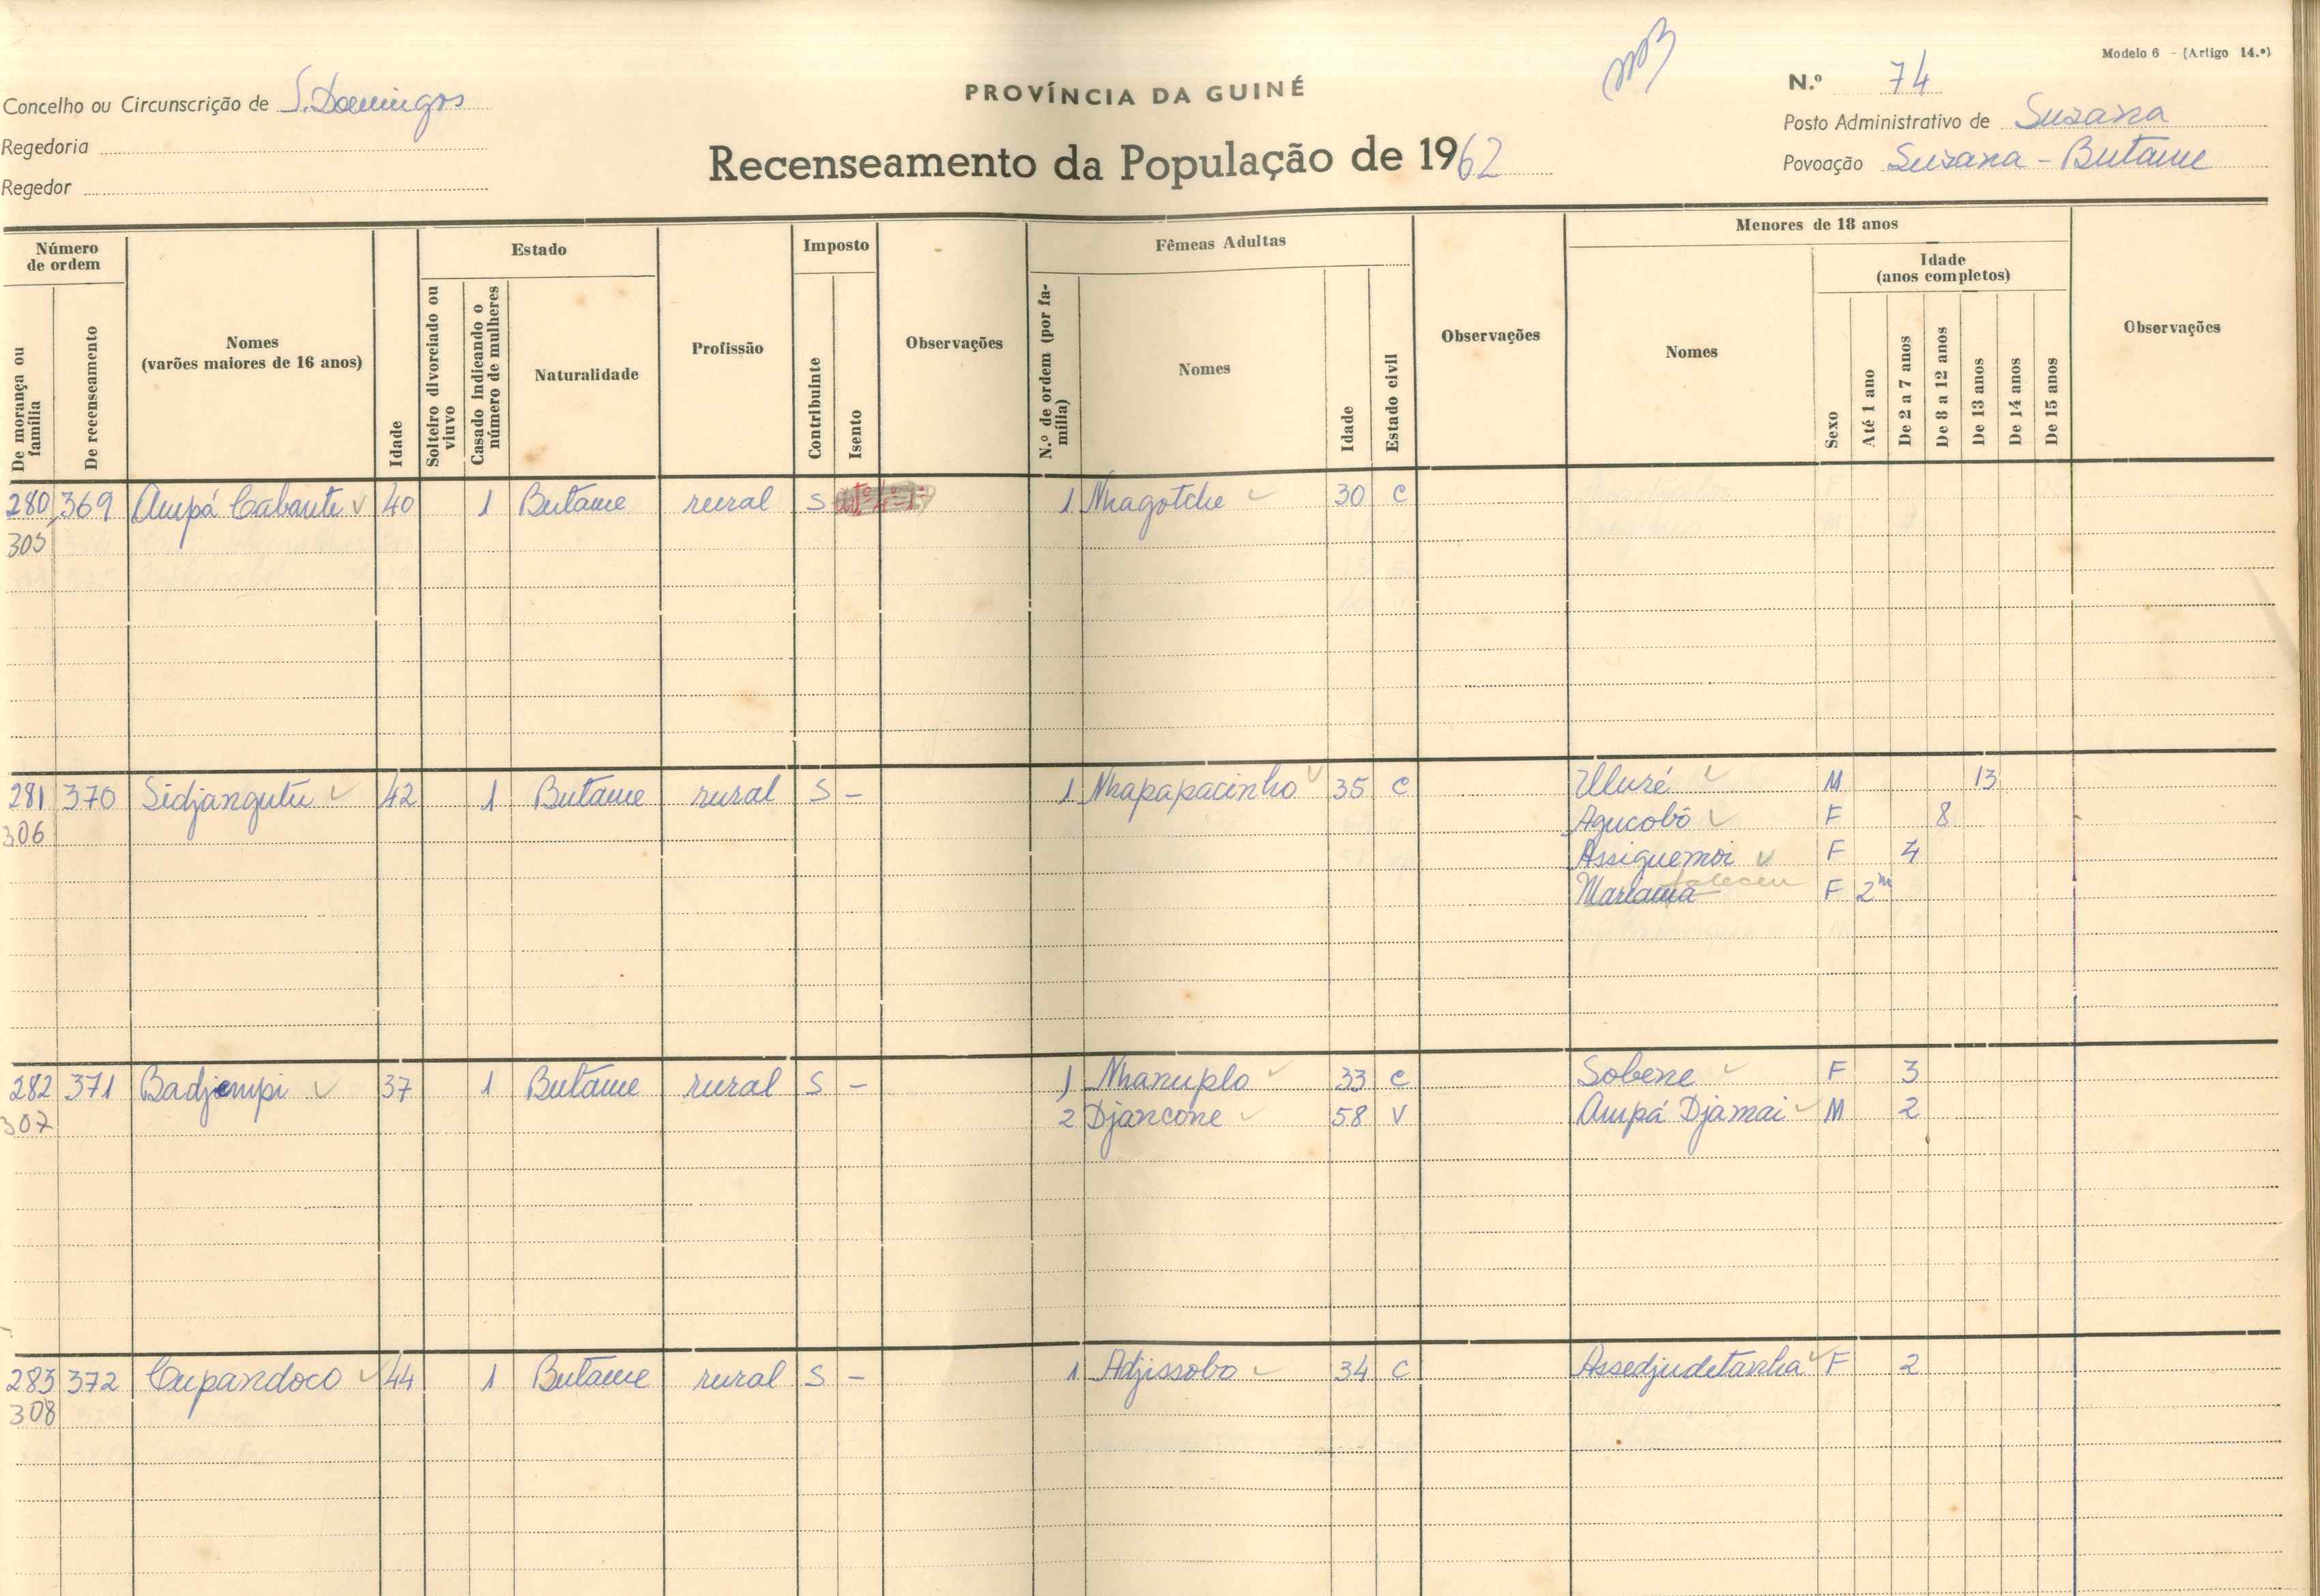 Modelo 6 - (Artigo 14.º)
PROVÍNCIA DA GUINÉ
N.º 74
Concelho ou Circunscrição de S. Domingos
Posto Administrativo de Suzana
Regedoria
Recenseamento da População de 1962
Povoação Suzana - Butame
Regedor
Número de ordem
De morança ou família
De recenseamento
Nomes
(varões maiores de 16 anos)
Idade
Estado
Solteiro divorciado ou viuvo
Casado indicando o número de mulheres
Naturalidade
Profissão
Imposto
Contribuinte
Isento
Observações
Fêmeas Adultas
N.º de ordem (por família)
Nomes
Idade
Estado civil
Observações
Menores de 18 anos
Nomes
Sexo
Idade
(anos completos)
Até 1 ano
De 2 a 7 anos
De 8 a 12 anos
De 13 anos
De 14 anos
De 15 anos
Observações
280 369 Ampá Cabante 40 1 Butame rural S 1 Nhagotche 30 C
305
281 370 Sidjangutu 42 1 Butame rural S - 1 Nhapapacinho 35 C Uluré M 13
306 Agucobô F 8
Assiguemoi F 4
Mariama faleceu F 2m
282 371 Badjampi 37 1 Butame rural S - 1 Nhanuplo 33 C Sobene F 3
307 2 Djancone 58 V Ampá Djamai M 2
283 372 Cupandoco 44 1 Butame rural S - 1 Adjissobo 34 C Assedjudetanha F 2
308